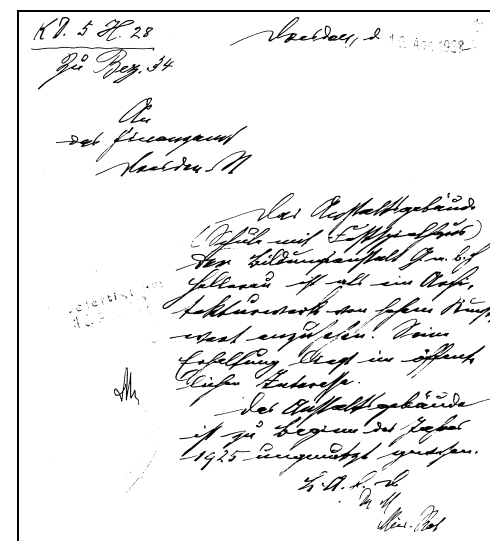 K D. 5 H. 28
Zu Bez. 34
Dresden, d. 13. Apr. 1928
An
das Finanzamt
Dresden-N
Das Anstaltsgebäude
(Schule mit Festspielhaus)
der Bildungsanstalt G.m.b.H
Hellerau ist als ein Archi-
tekturwerk von hohem Kunst-
wert anzusehen. Seine
Erhaltung liegt im öffent-
lichen Interesse.
Das Anstaltsgebäude
ist zu Beginn des Jahres
1925 ungenutzt gewesen.
Min. Rat